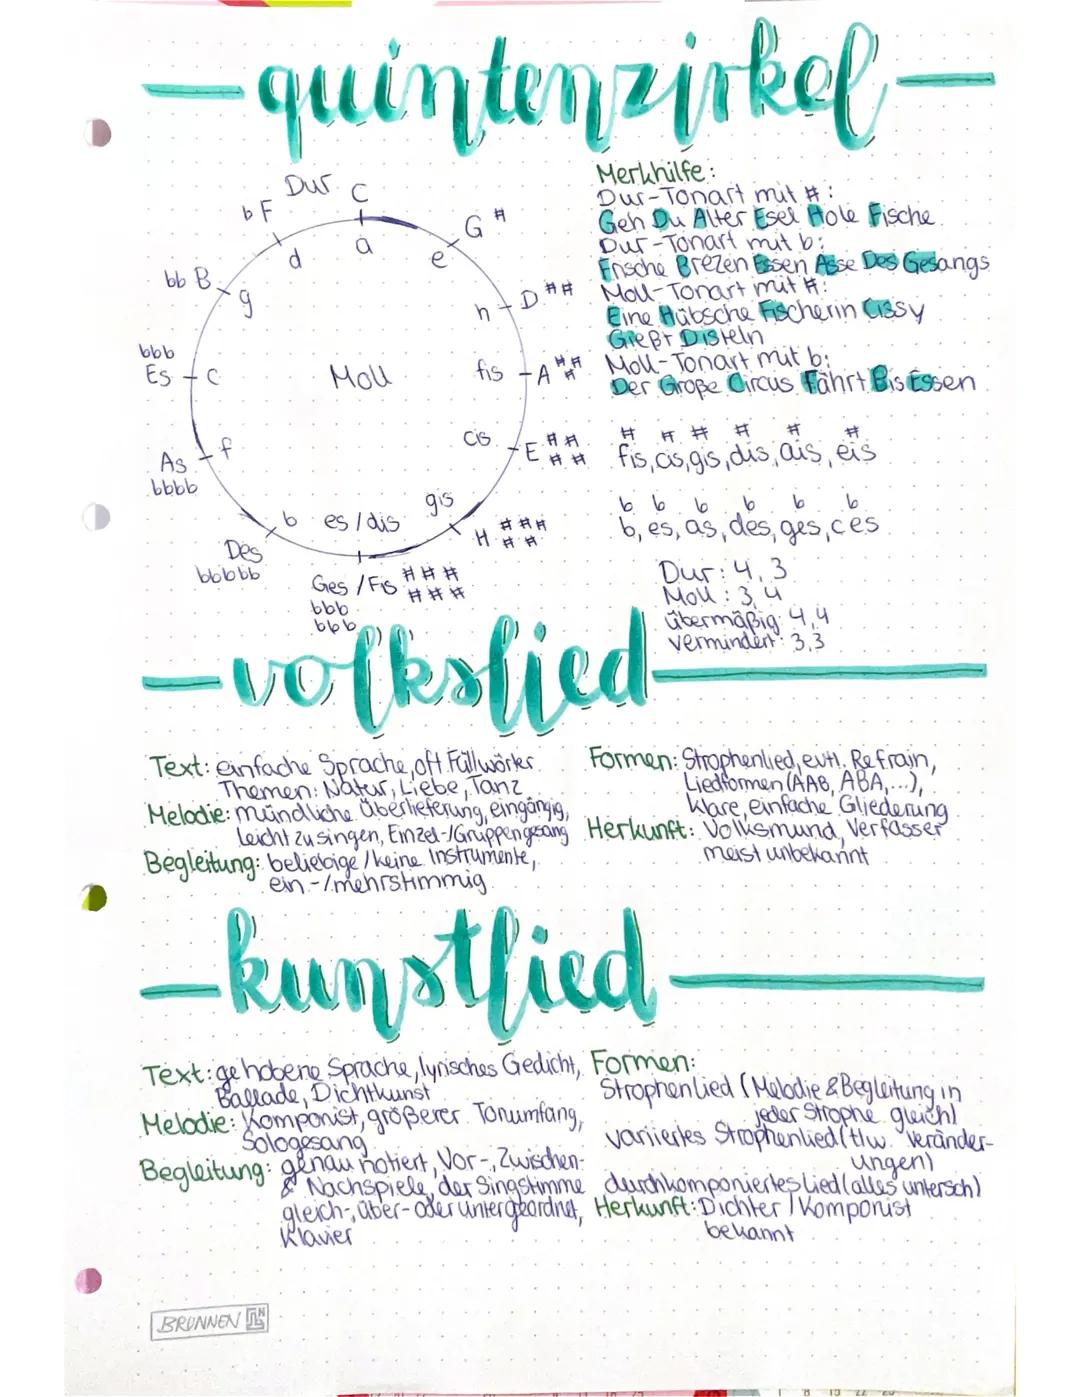 quintenzirkel
Dur
C
a
G #
e
D ##
h
A ###
fis
E ####
cis
H #####
gis
Ges / Fis ######
bbb
bbb
es / dis
Des
bbbbb
b
As
bbbb
f
bbb
Es
c
bb B
g
b F
d
Moll
Merkhilfe:
Dur-Tonart mit #:
Geh Du Alter Esel Hole Fische
Dur-Tonart mit b:
Frische Brezen Essen Asse Des Gesangs
Moll-Tonart mit #:
Eine Hübsche Fischerin Cissy
Gießt Disteln
Moll-Tonart mit b:
Der Große Circus Fährt Bis Essen
# # # # # #
fis, cis, gis, dis, ais, eis
b b b b b b
b, es, as, des, ges, ces
Dur: 4, 3
Moll: 3, 4
übermäßig: 4,4
vermindert: 3,3
volkslied
Text: einfache Sprache, oft Füllwörter
Themen: Natur, Liebe, Tanz
Melodie: mündliche Überlieferung, eingängig,
leicht zu singen, Einzel-/Gruppengesang
Begleitung: beliebige / keine Instrumente,
ein-/mehrstimmig
Formen: Strophenlied, evtl. Refrain,
Liedformen (AAB, ABA,...),
klare, einfache Gliederung
Herkunft: Volksmund, Verfasser
meist unbekannt
kunstlied
Text: gehobene Sprache, lyrisches Gedicht,
Ballade, Dichtkunst
Melodie: Komponist, größerer Tonumfang,
Sologesang
Begleitung: genau notiert, Vor-, Zwischen-
& Nachspiele, der Singstimme
gleich-, über- oder untergeordnet,
Klavier
Formen:
Strophenlied (Melodie & Begleitung in
jeder Strophe gleich)
variiertes Strophenlied (tlw. Veränder-
ungen)
durchkomponiertes Lied (alles untersch)
Herkunft: Dichter / Komponist
bekannt
BRUNNEN